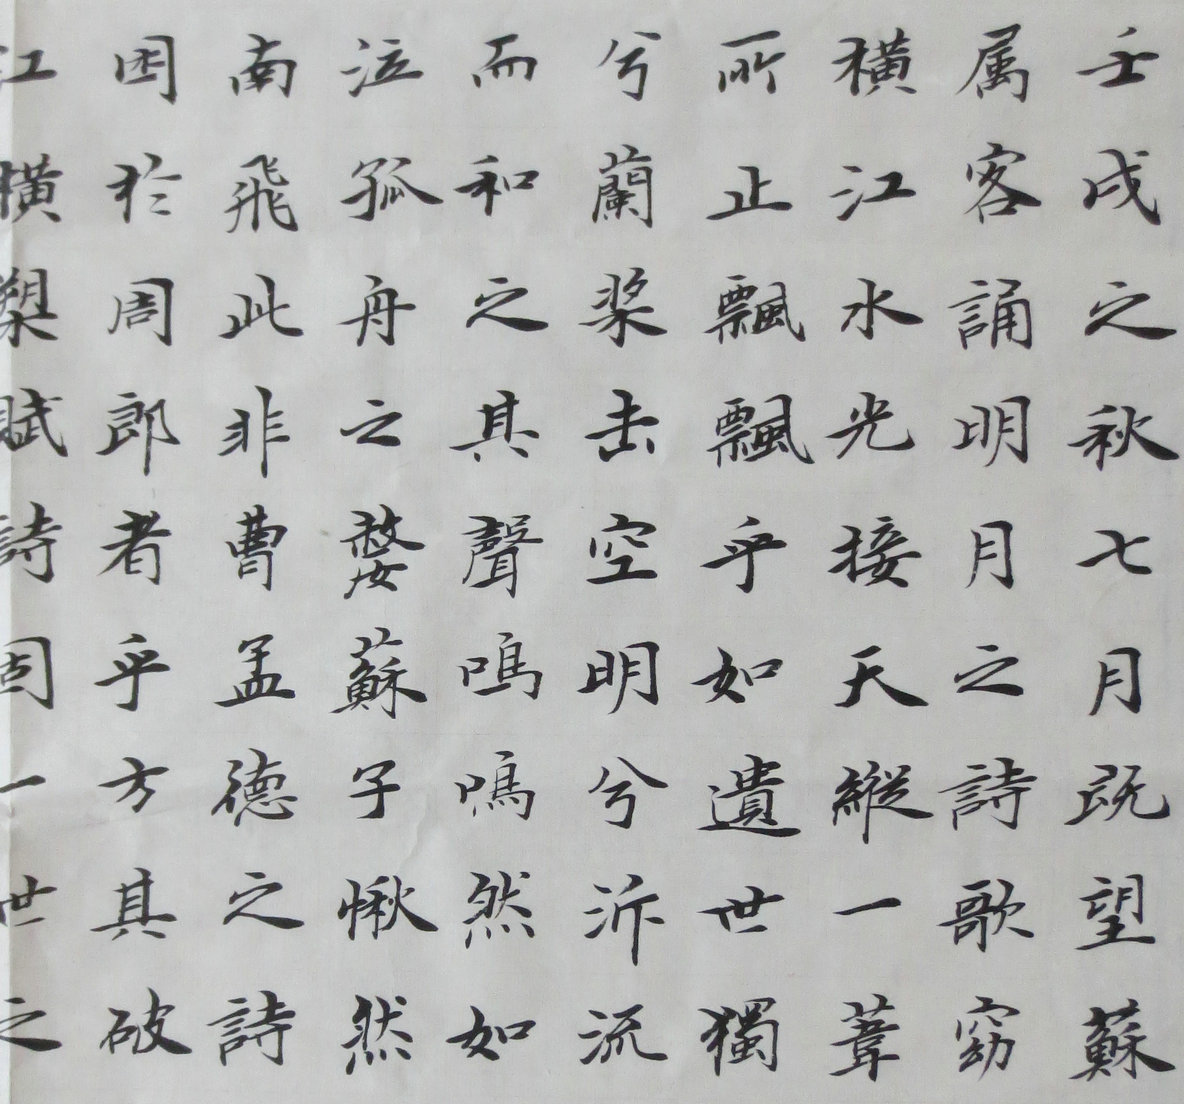 壬戌之秋七月既望蘇
属客誦明月之詩歌窈
橫江水光接天縱一葦
所止飄飄乎如遺世獨
兮蘭桨击空明兮泝流
而和之其聲嗚嗚然如
泣孤舟之嫠蘇子愀然
南飛此非曹孟德之詩
困於周郎者乎方其破
江橫槊賦詩固一世之